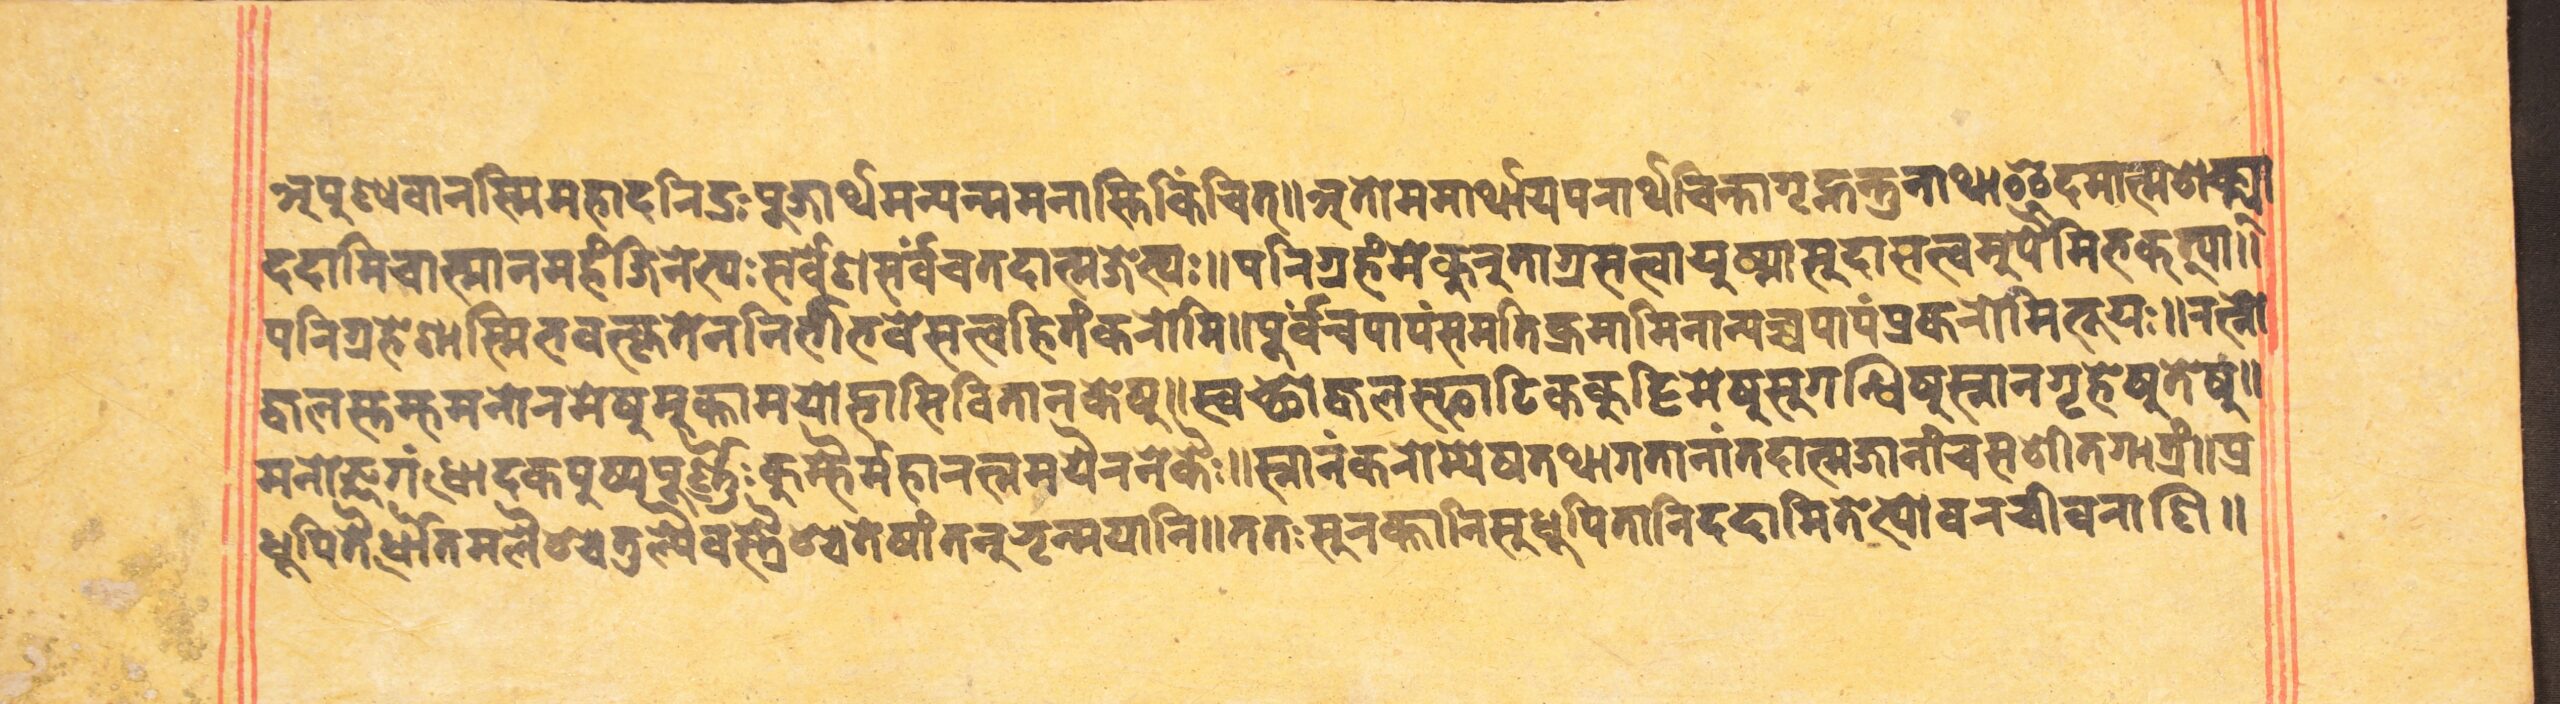 अपुण्यवानस्मिमहादरिद्रःपुजार्थमन्यन्ममनास्तिकिंचित्॥अतोममार्थायपरार्थचिन्तागृह्नन्तुनाथाइदमात्मशक्त्या
ददामिचात्मानमहंजिनेभ्यःसर्वेणसर्वंचतदात्मजेभ्यः॥परिग्रहंमेकुरुताग्रसत्वायुष्मासुदासत्वमुपैमिभक्त्या॥
परिग्रहेणास्मिभवत्कृतेननिर्भीभवेसत्वहितंकरोमि॥पुर्वंचपापंसमतिक्रमामिनान्यच्चपापंप्रकरोमिभूयः॥रत्नो
ज्वलस्तम्भमनोरमेषुमुक्तामयोद्भासिवितानकेषु॥स्वच्छोज्वलस्फाटिककुट्टिमेषुसुगन्धिषुस्नानगृहेषुतेषुं॥
मनोज्ञगंधोदकपुष्पपूर्णैःकुम्भैर्महारत्नमयैरनेकैः॥स्नानंकरोम्येषतथागतानांतदात्मजानांचसगीतगात्रं॥प्र
धूपितैर्धौतमलैश्चतुल्यैवस्त्रैश्चतेषांतनुमृन्मयानि॥ततःसुरक्तानिसुधूपितानिददामितेभ्योवरचीवराणि॥